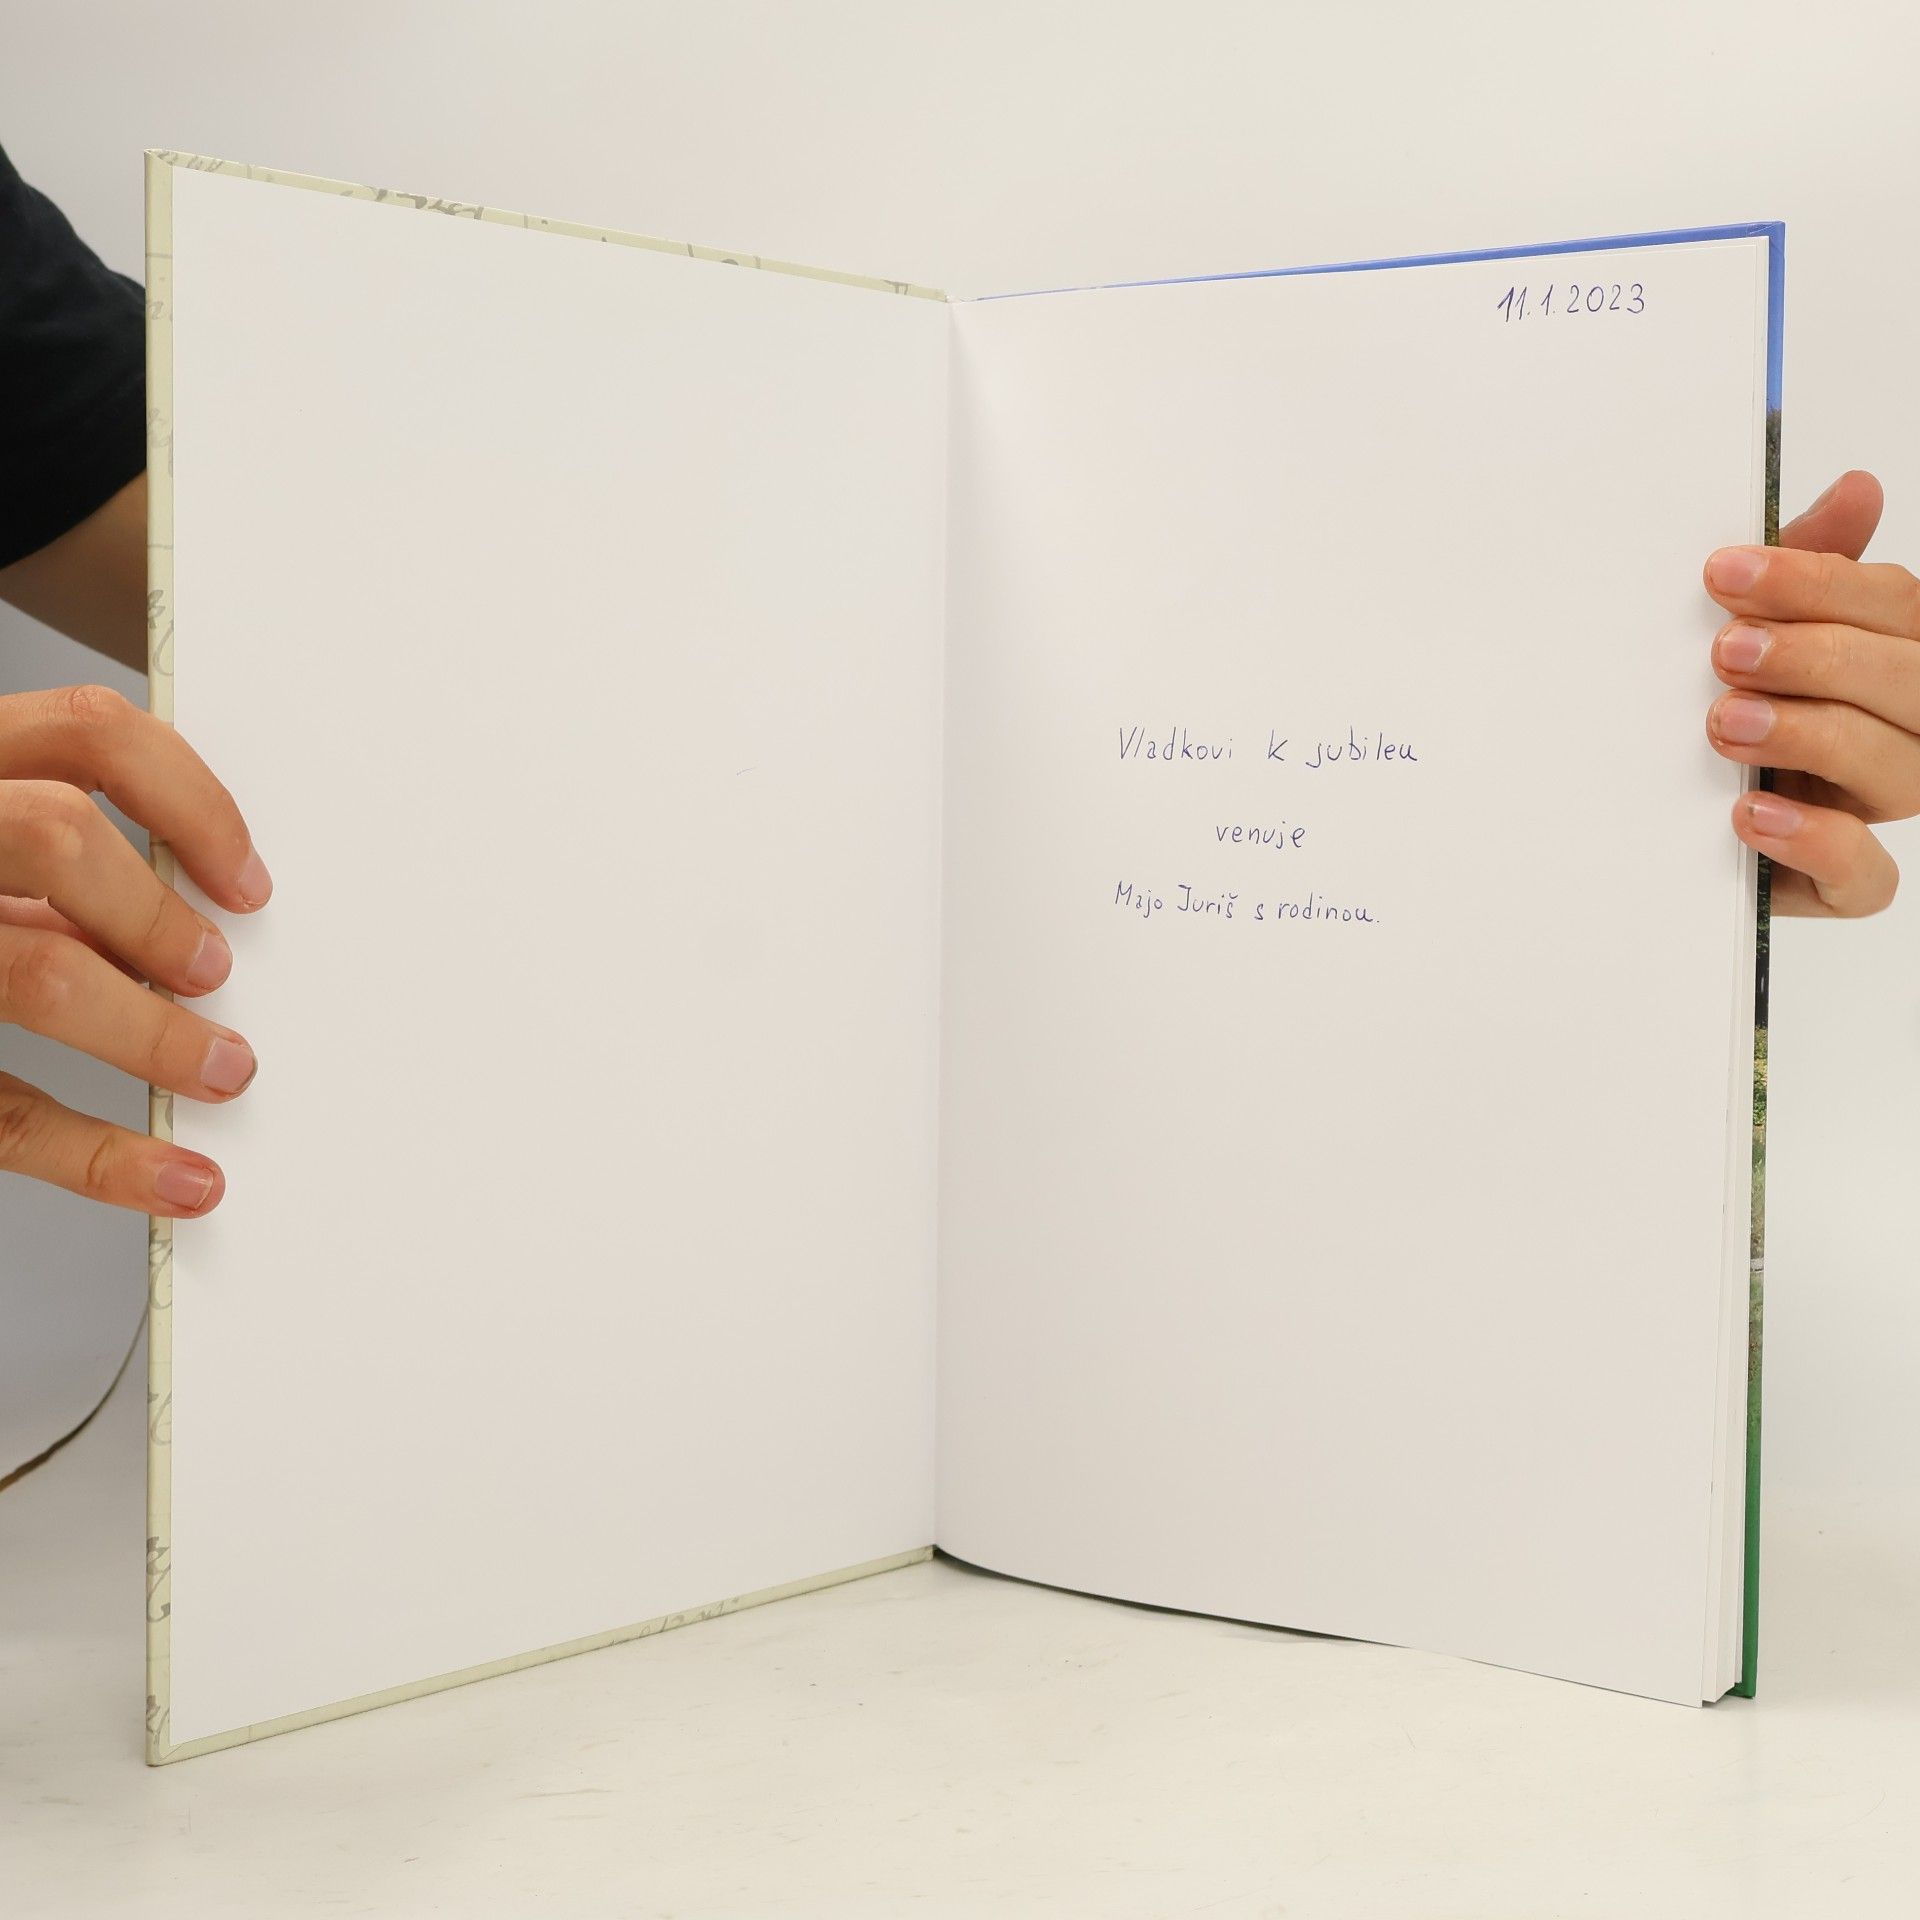 11.1.2023
Vladkovi k jubileu
venuje
Majo Juriš s rodinou.